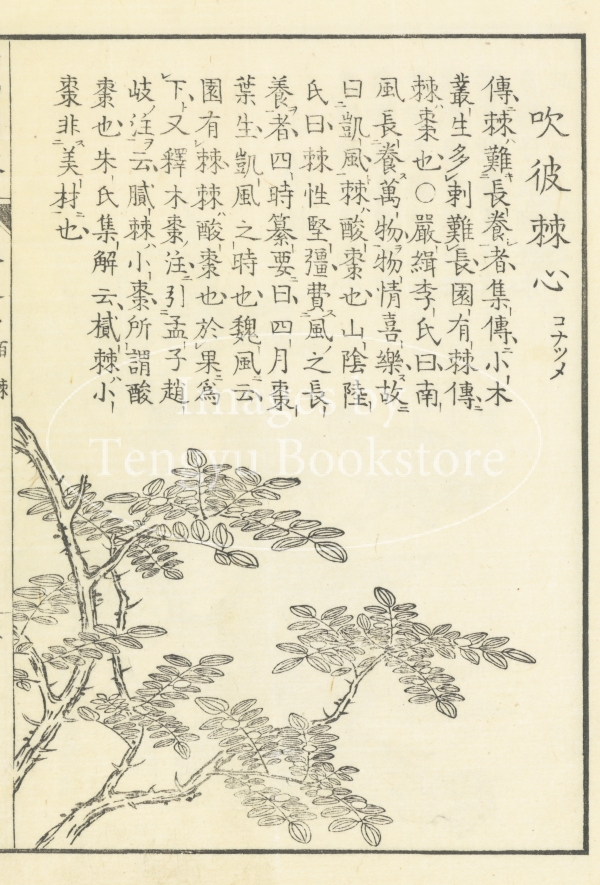 吹彼棘心 コナツメ
傳棘難長養者集傳小木
叢生多刺難長園有棘傳
棘棗也〇嚴緝李氏曰南
風長養萬物物情喜樂故
曰凱風棘酸棗也山陰陸
氏曰棘性堅彊費風之長
養者四時纂要曰四月棗
葉生凱風之時也魏風云
園有棘棘酸棗也於果爲
下又釋木棗注引孟子趙
岐注云膩棘小棗所謂酸
棗也朱氏集解云樲棘小
棗非美材也
Images by
Tengyu Bookstore